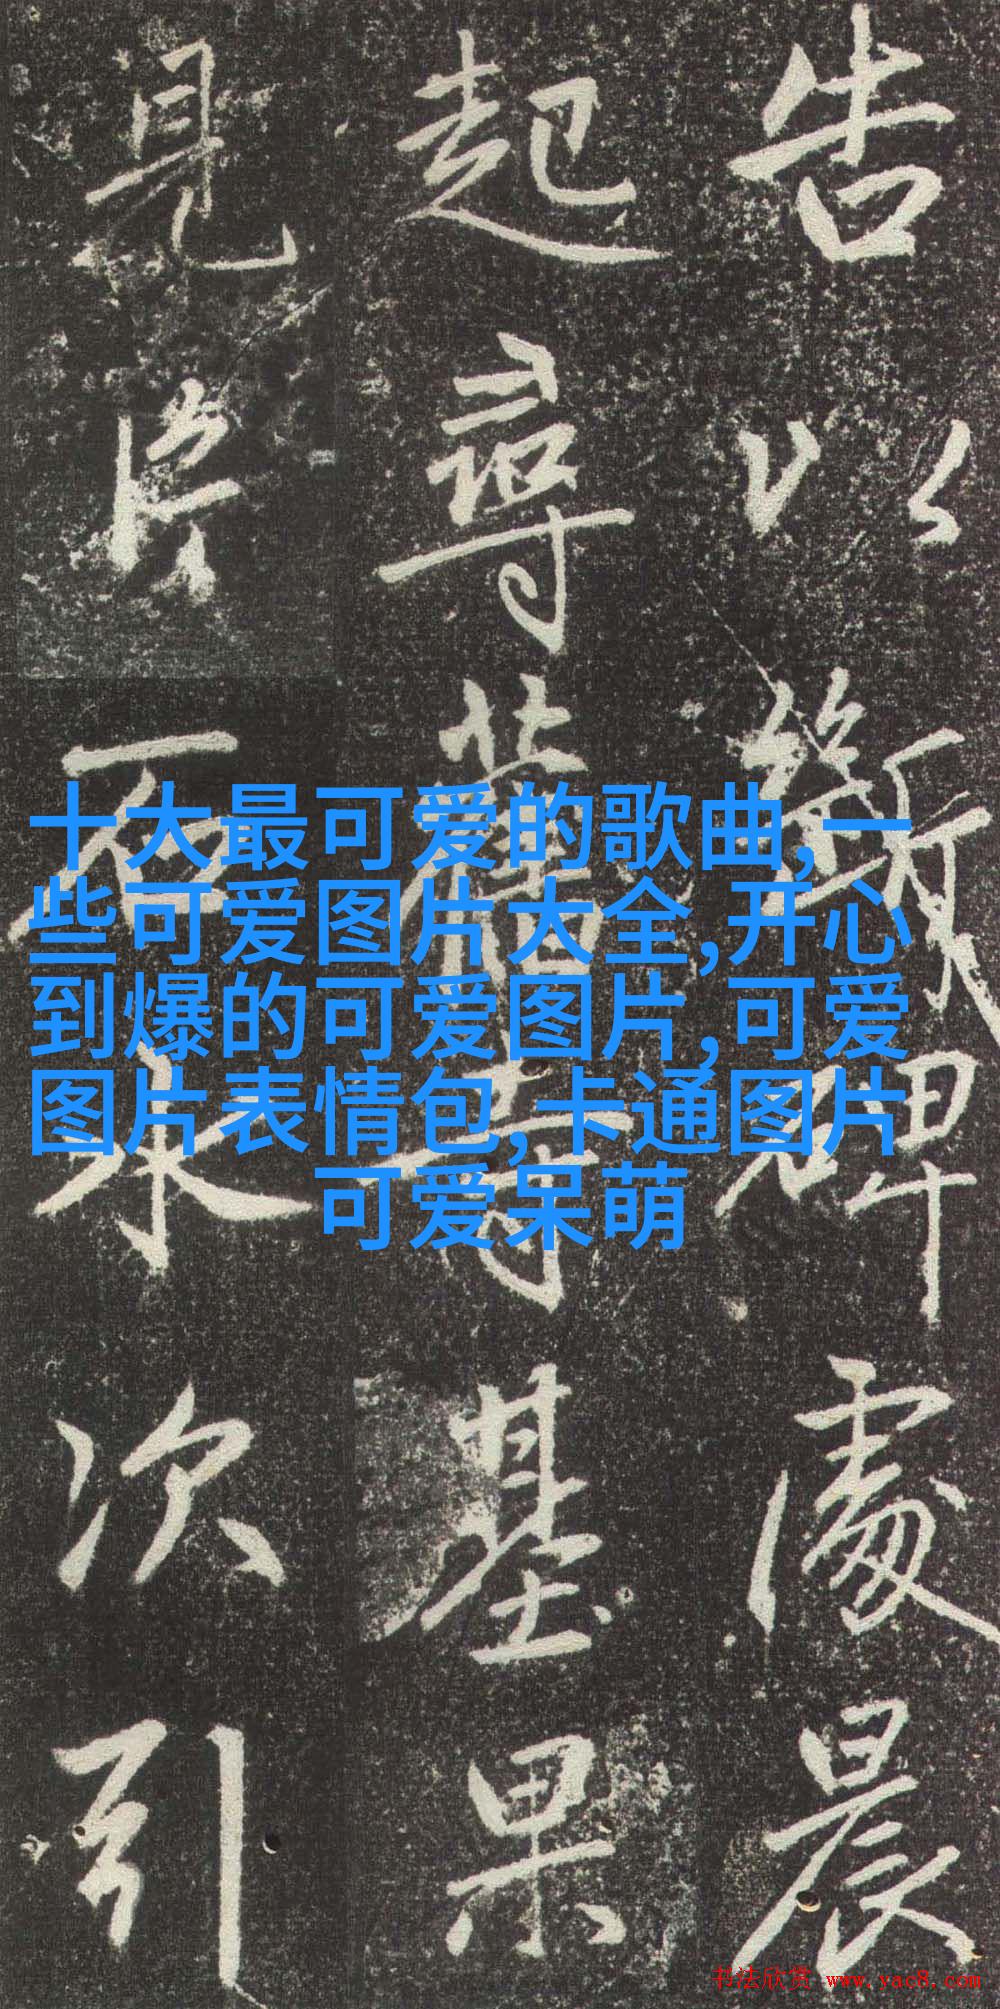 告以碑處晨
起尋寺基果
見石次引
十大最可爱的歌曲,一
些可爱图片大全,开心
到爆的可爱图片,可爱
图片表情包,卡通图片
可爱呆萌
书法欣赏 www.yac8.com